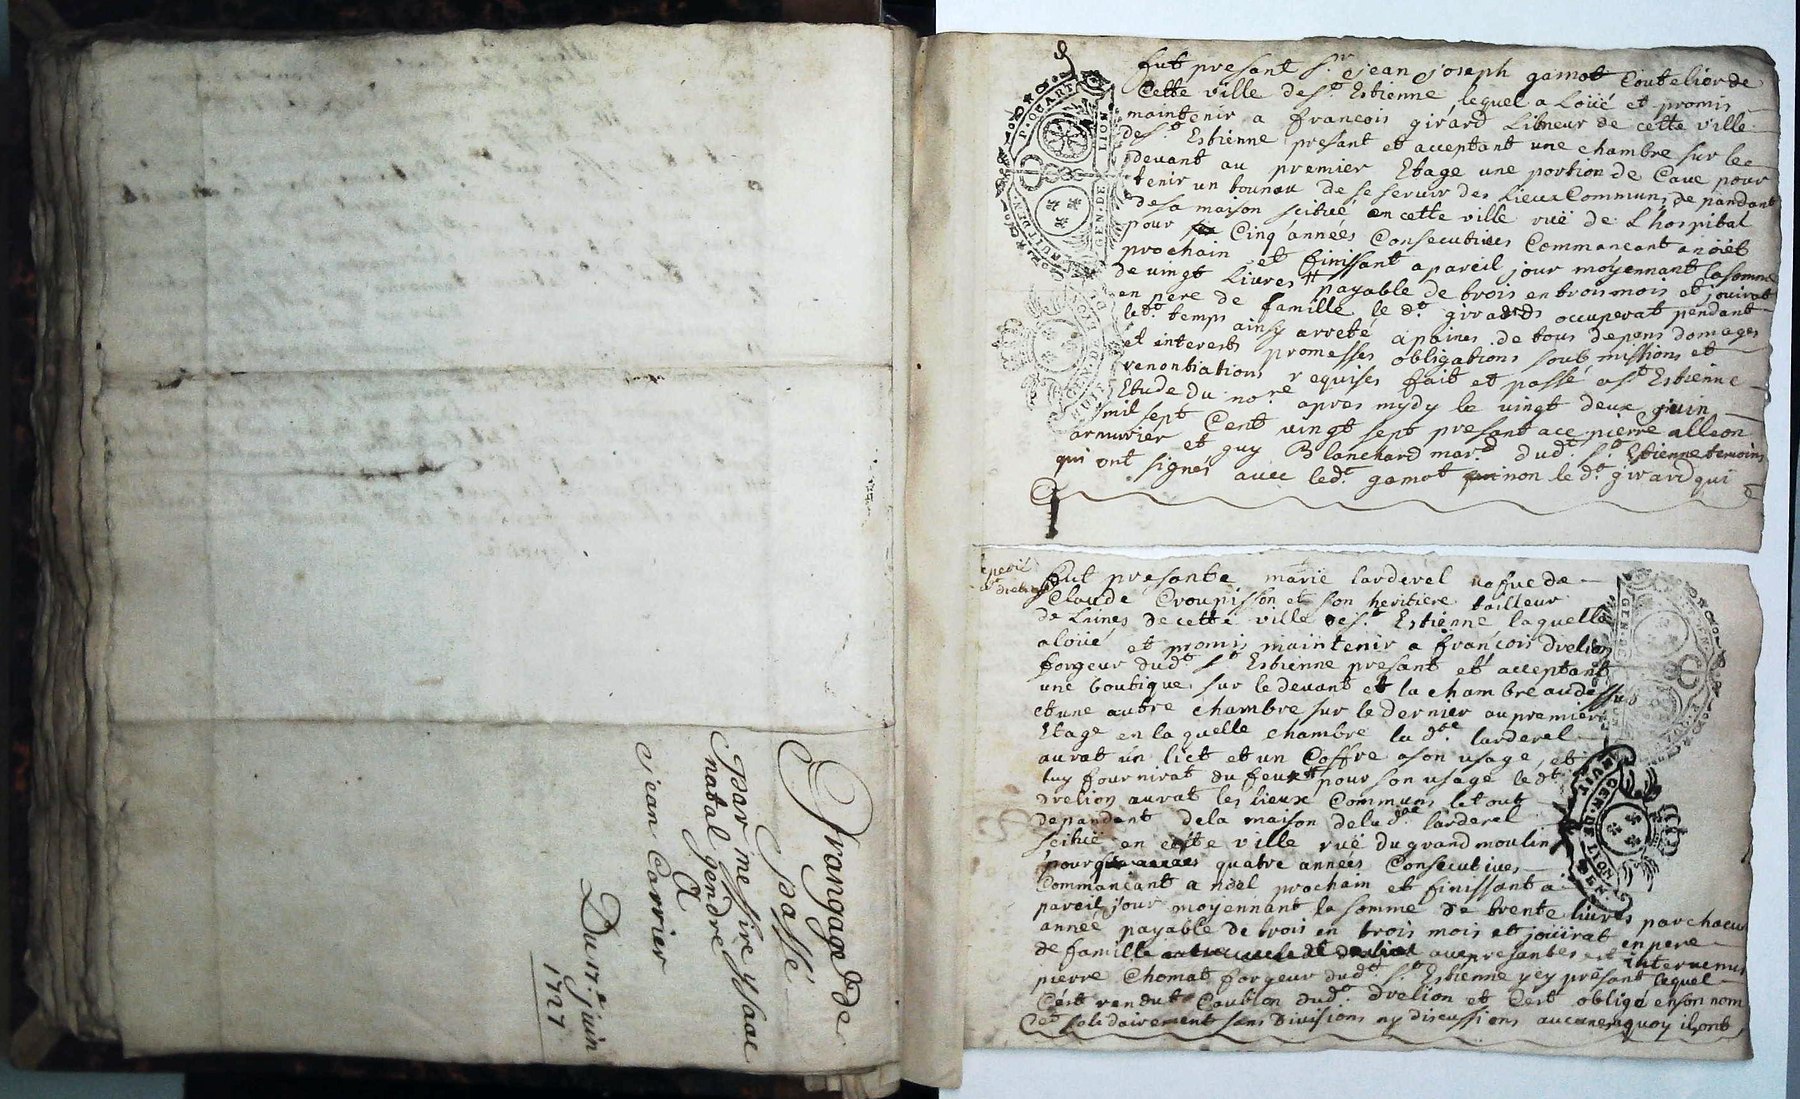 Du 17.e juin
1727
jean Carrier
A
natal gendre
Par messire ysaac
passé
Fut presant s.r jean joseph gamot Coutelier de
Cette ville de s.t Estienne lequel a Loüé et promis
maintenir a francois girard Limeur de cette ville
de s.t Estienne presant et acceptant une chambre sur le
devant au premier Etage une portion de Cave pour
tenir un touneau de se servir des Lieux Communs de pandant
de sa maison scitué en cette ville ruë de L'hospital
pour Cinq années Consecutives Commancant a noël
prochain et finissant a pareil jour moyennant la somme
de vingt Livres payable de trois en trois mois et jouirat
en pere de famille le d.t girard occuperat pendant
led.t temps ainsy arreté a paines de tous depens domages
et interests promesses obligations soubmissions et
renontiations requises fait et passé a s.t Estienne
Etude du no.re apres mydy le vingt deux juin
mil sept Cent vingt sept presant ace pierre alleon
armurier et guy Blanchard mar.d dud.t s.t Estienne temoins
qui ont signés avec led.t gamot non le d.t girard qui
Fut presante marie larderel vefue de
Claude Croupisson et son heritiere tailleur
de Limes de cette ville de s.t Estienne laquelle
a loüé et promis maintenir a francois drelion
forgeur dud.t s.t Estienne presant et acceptant
une boutique sur le devant et la chambre au dessus
et une autre chambre sur le dernier au premier
Etage en la quelle chambre la d.te larderel
aurat un lict et un Coffre a son usage et
luy fournirat du feu pour son usage le d.t
drelion aurat les lieux Communs le tout
dependant de la maison de lad.te larderel
scitué en cette ville ruë du grand moulin
pour quatre années Consecutives
Commancant a noel prochain et finissant a
pareil jour moyennant la somme de trente livres par chacun
année payable de trois en trois mois et joüirat en pere
de famille aux presantes est intervenus
pierre Chomat forgeur dud.t s.t Estienne ycy presant lequel
C'est rendut Caution dud.t drelion et C'est obligé en son nom
solidairement sans divisions ny discussions aucunes a quoy ils ont
P. QUART
GEN. DE LION